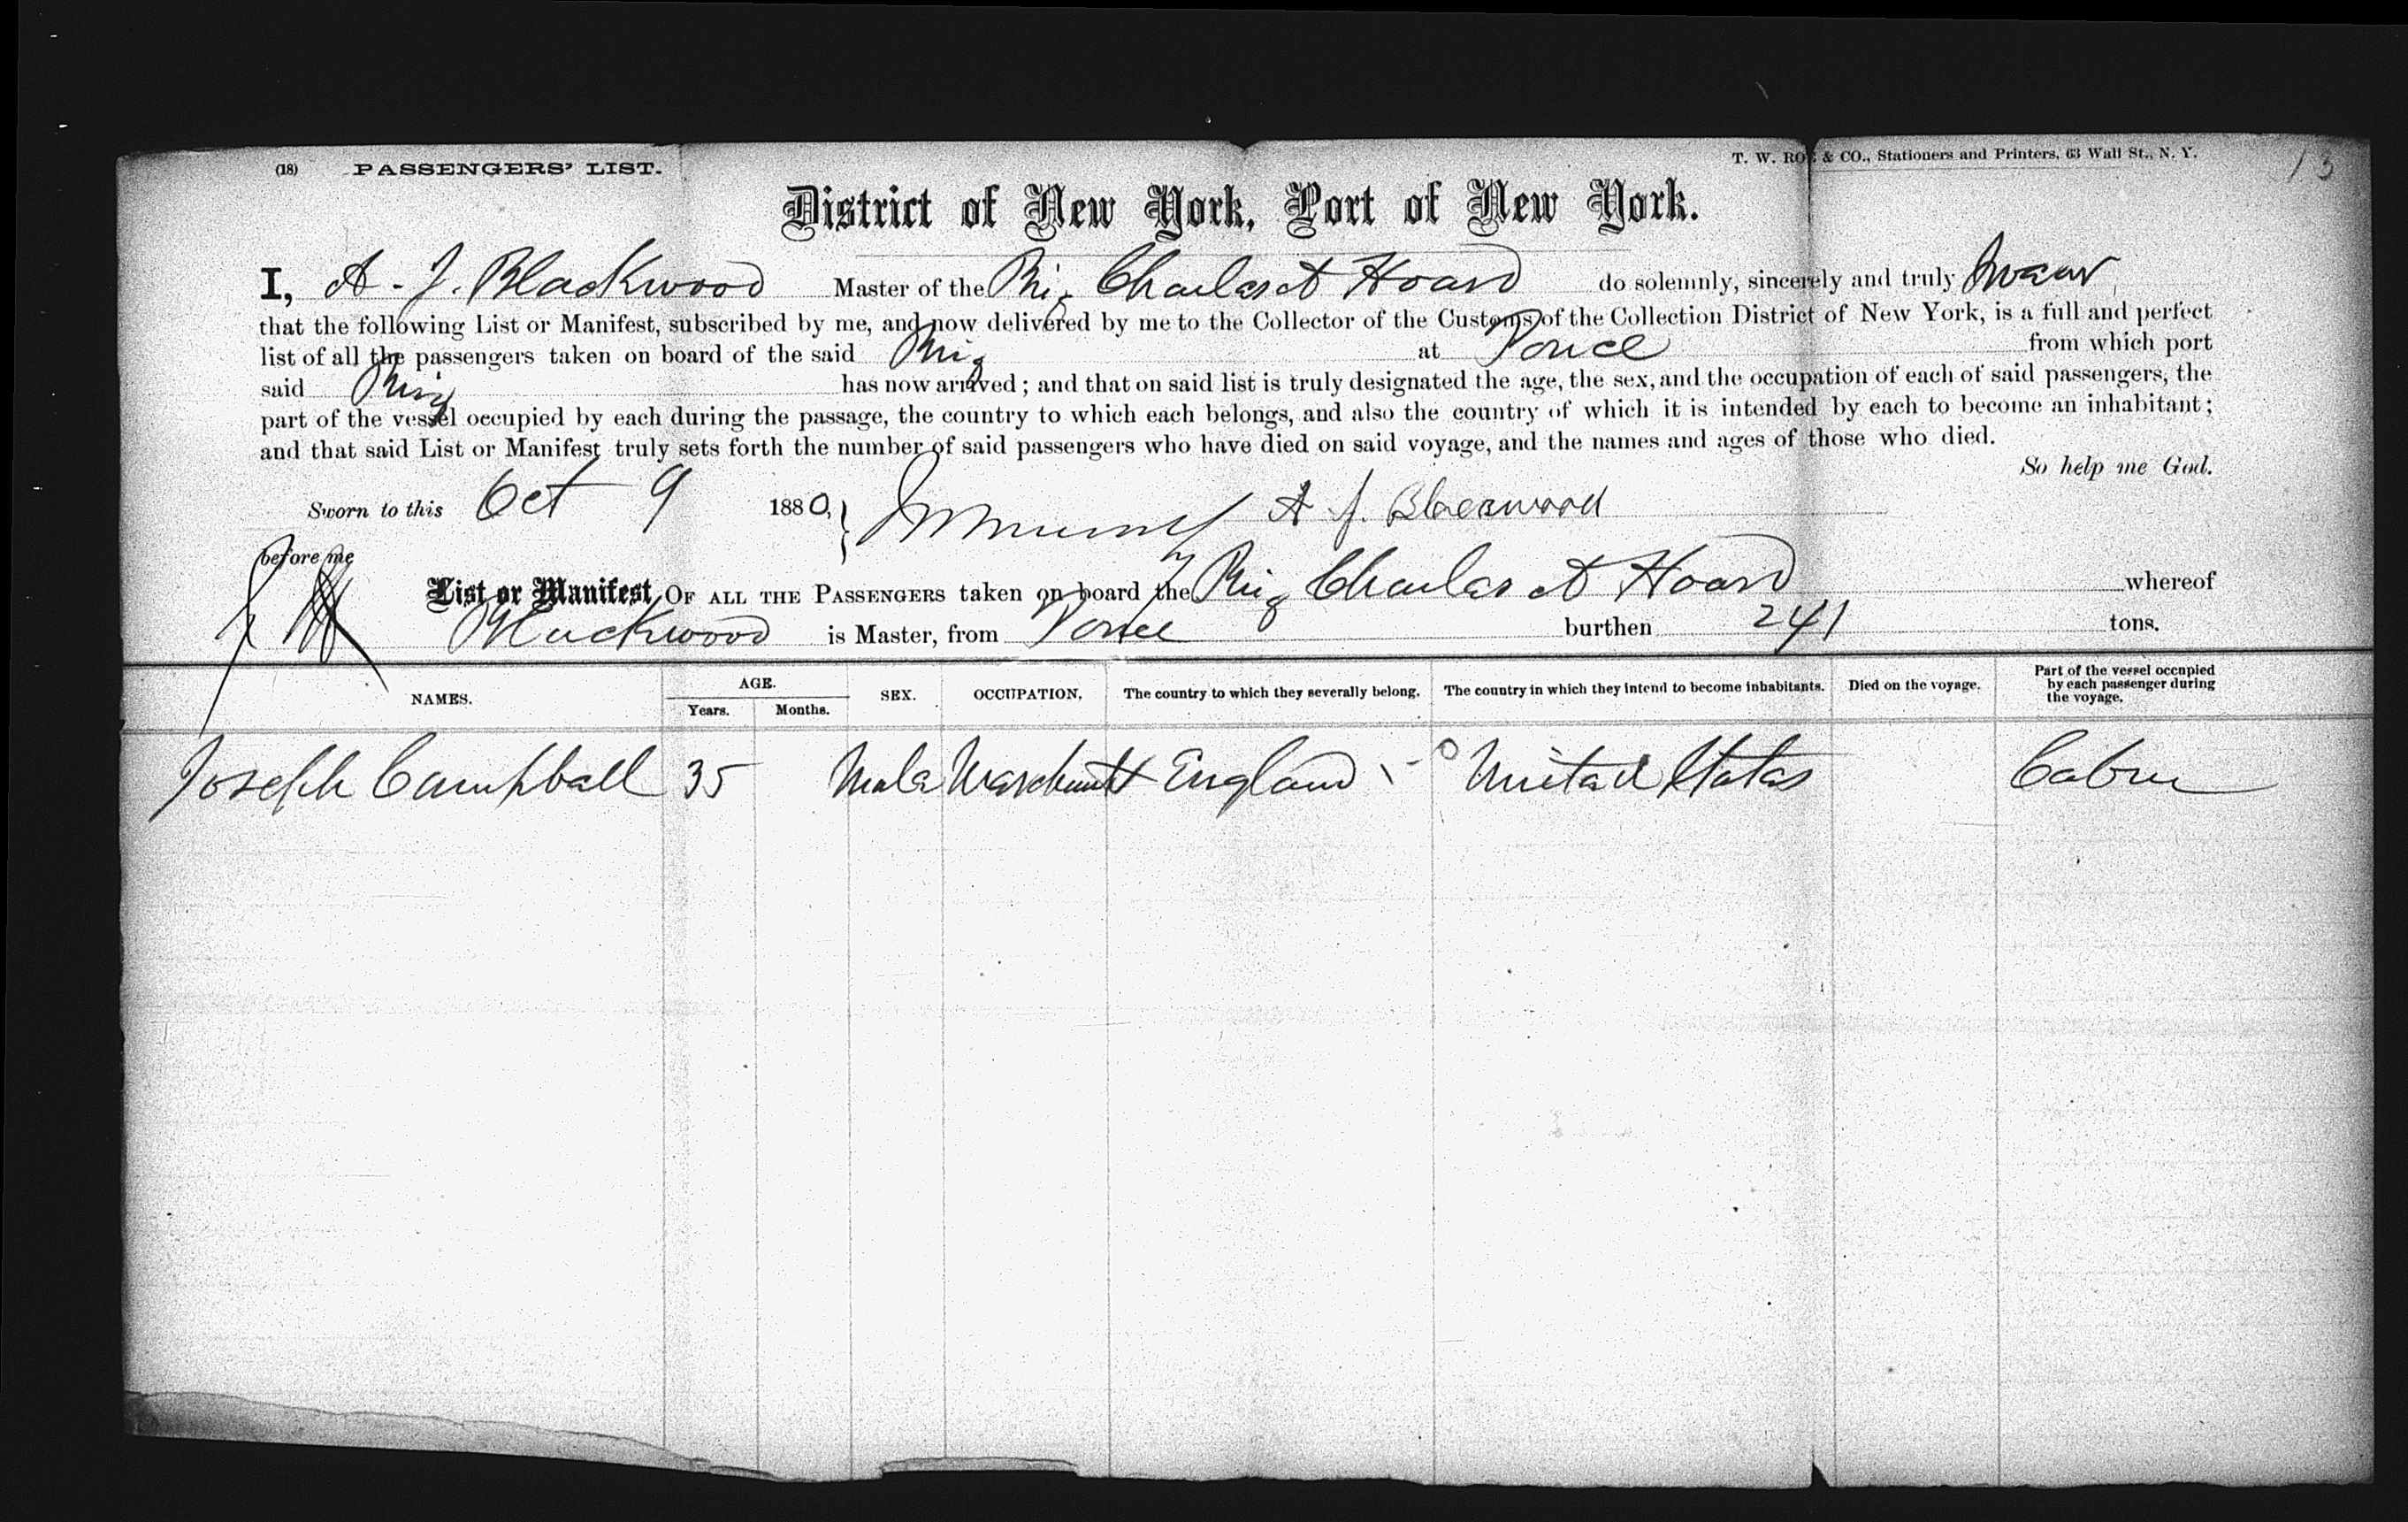 (18) PASSENGERS' LIST.
T. W. ROE & CO., Stationers and Printers, 63 Wall St., N. Y.
13
District of New York, Port of New York.
I, A. J. Blackwood Master of the Brig Charles A Hoard do solemnly, sincerely and truly swear
that the following List or Manifest, subscribed by me, and now delivered by me to the Collector of the Customs of the Collection District of New York, is a full and perfect
list of all the passengers taken on board of the said Brig at Ponce from which port
said Brig has now arrived; and that on said list is truly designated the age, the sex, and the occupation of each of said passengers, the
part of the vessel occupied by each during the passage, the country to which each belongs, and also the country of which it is intended by each to become an inhabitant;
and that said List or Manifest truly sets forth the number of said passengers who have died on said voyage, and the names and ages of those who died.
So help me God.
Sworn to this Oct 9 1880, A J. Blackwood
before me
List or Manifest OF ALL THE PASSENGERS taken on board the Brig Charles A Hoard whereof
Blackwood is Master, from Ponce burthen 241 tons.
NAMES. AGE. Years. Months. SEX. OCCUPATION. The country to which they severally belong. The country in which they intend to become inhabitants. Died on the voyage. Part of the vessel occupied by each passenger during the voyage.
Joseph Campball 35 Male Marchant England United States Cabin